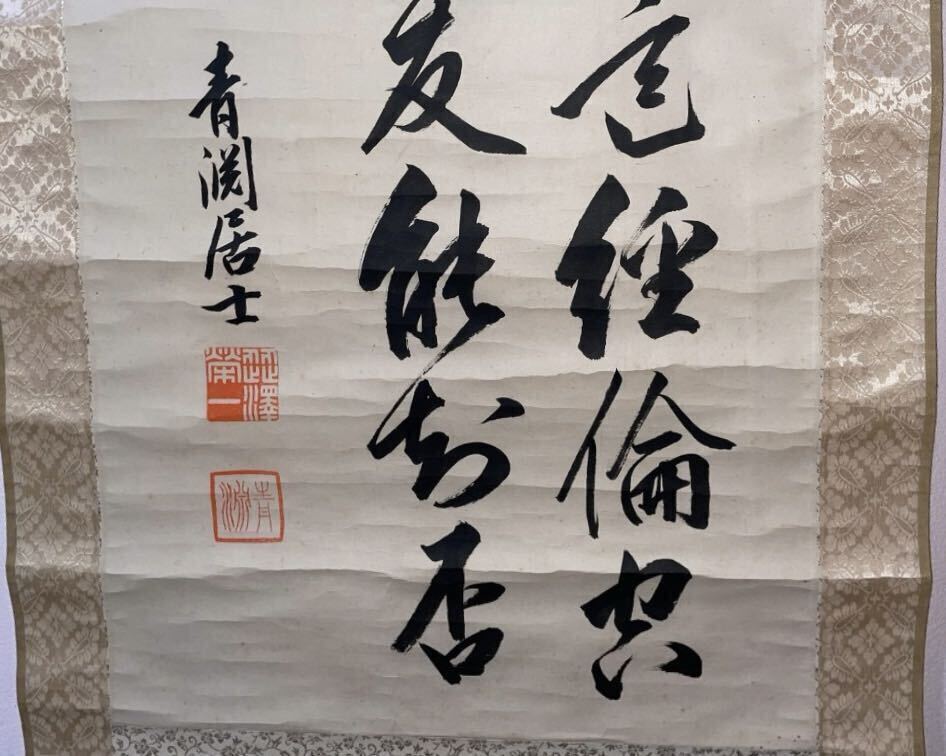 經倫
友能知否
青淵居士
澁澤榮一
青淵